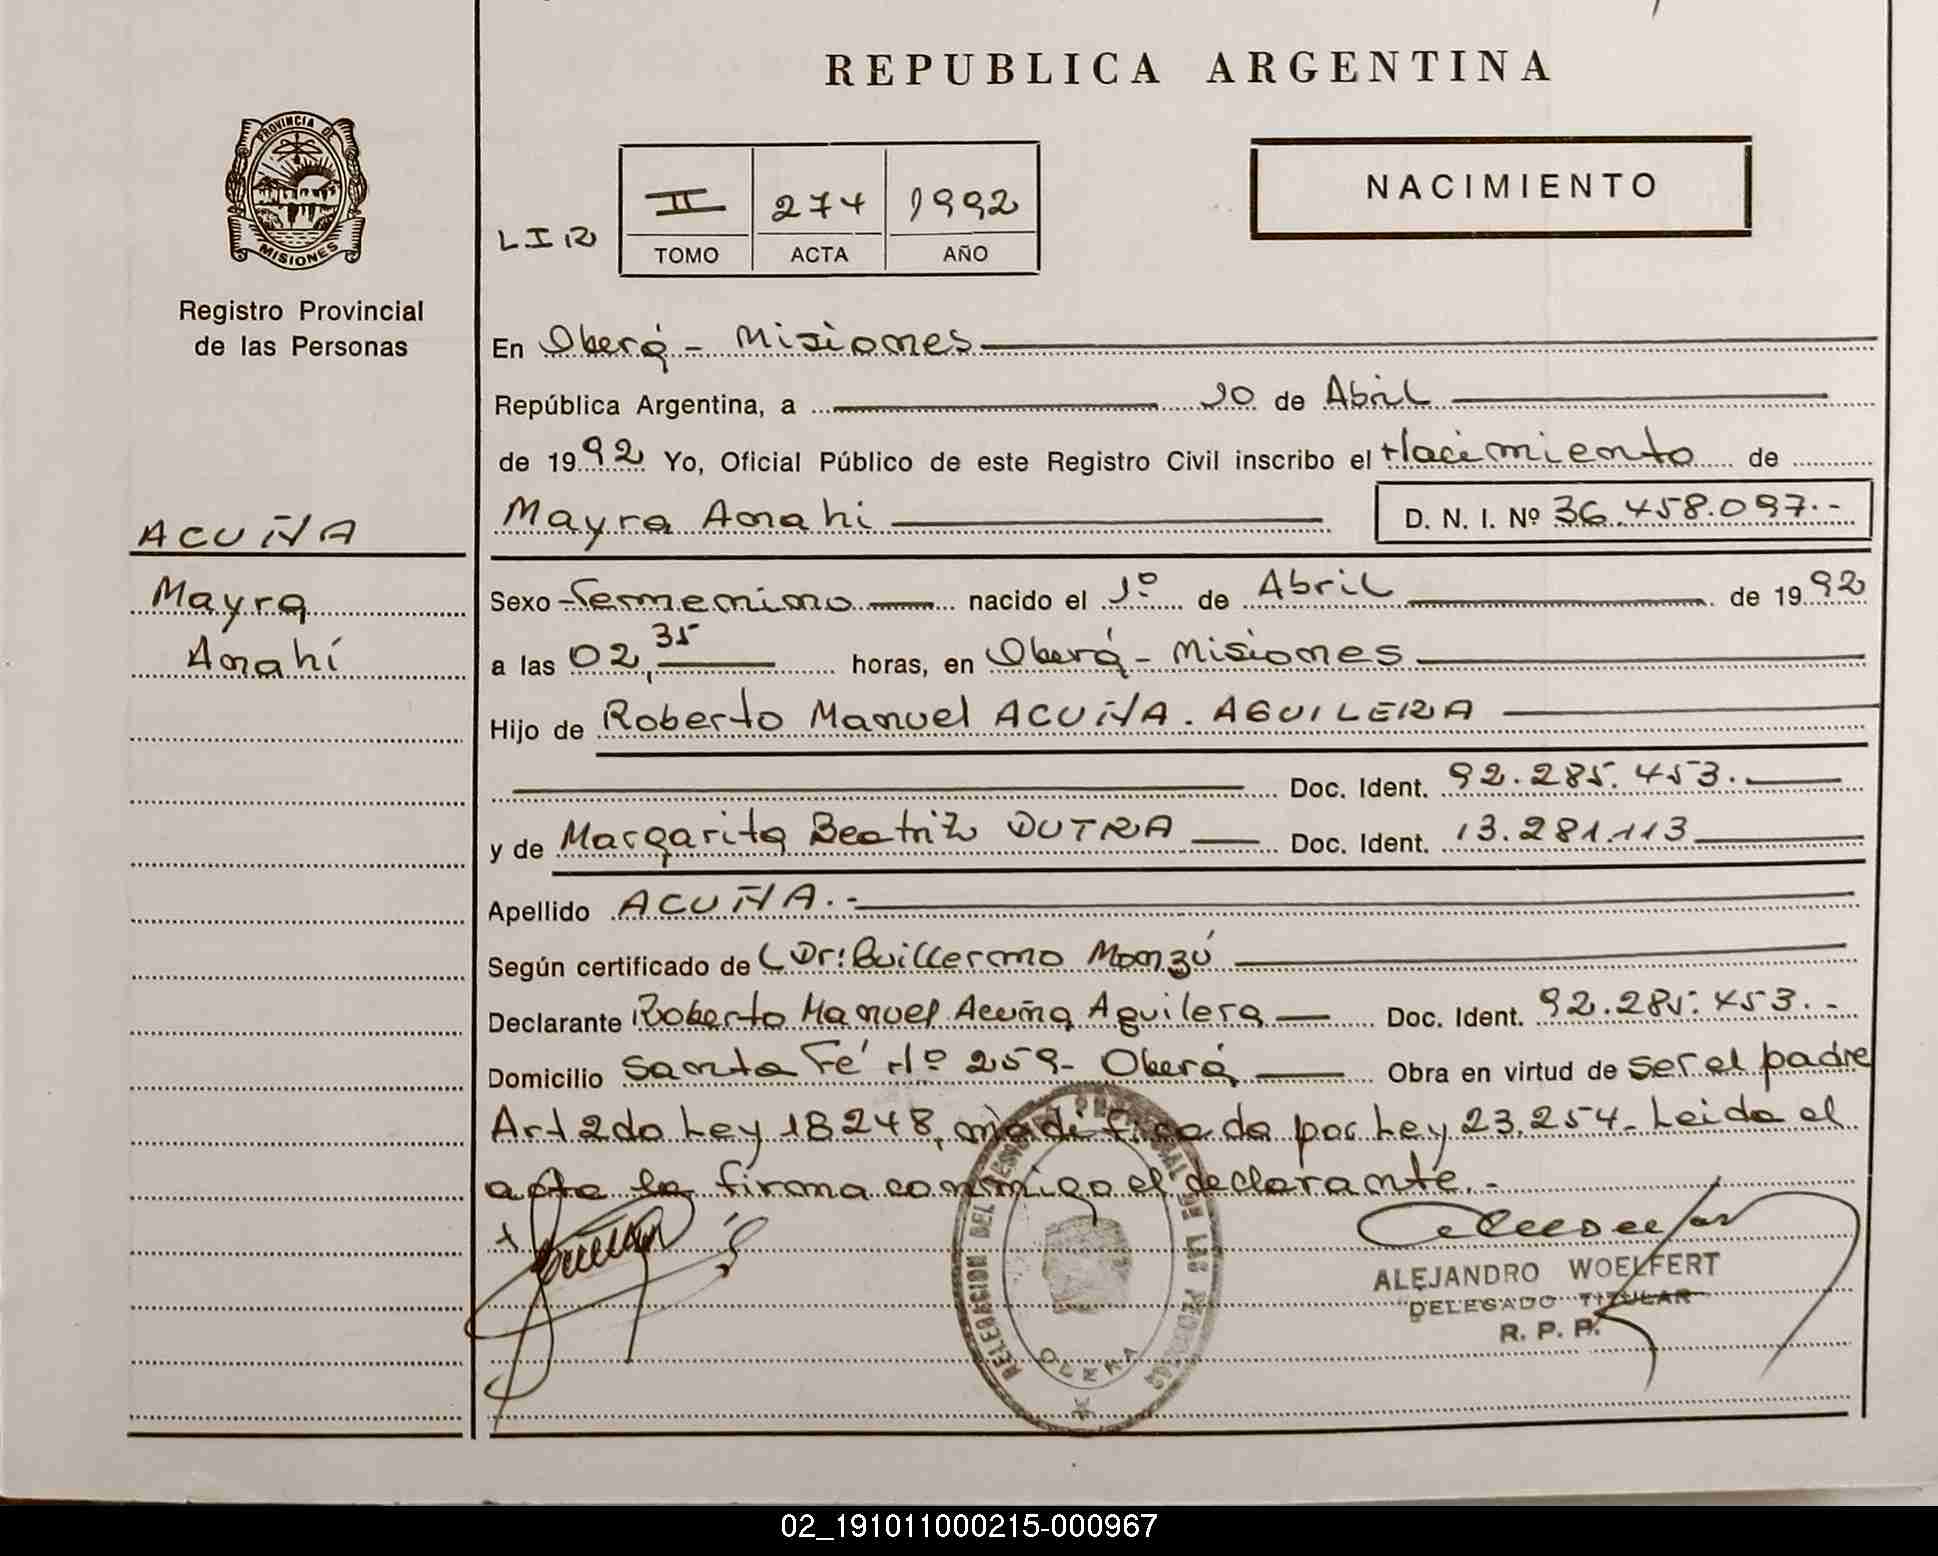 REPUBLICA ARGENTINA
PROVINCIA DE
MISIONES
Registro Provincial
de las Personas
NACIMIENTO
LIR
II 274 1992
TOMO ACTA AÑO
En Oberá - Misiones
República Argentina, a 10 de Abril
de 1992 Yo, Oficial Público de este Registro Civil inscribo el Nacimiento de
Mayra Anahi D. N. I. Nº 36.458.097.-
ACUÑA
Mayra
Anahí
Sexo Femenino nacido el 1º de Abril de 1992
a las 02,35 horas, en Oberá - Misiones
Hijo de Roberto Manuel ACUÑA. AGUILERA
Doc. Ident. 92.285.453.
y de Margarita Beatriz DUTRA Doc. Ident. 13.281.113
Apellido ACUÑA.-
Según certificado de Dr: Guillermo Monzú
Declarante Roberto Manuel Acuña Aguilera Doc. Ident. 92.285.453.-
Domicilio Santa Fé Nº 259- Oberá Obra en virtud de ser el padre
Art 2do Ley 18248, modificada por Ley 23.254- Leida el
acta la firma conmigo el declarante.-
ALEJANDRO WOELFERT
DELEGADO TITULAR
R. P. P.
OBERA
02_191011000215-000967